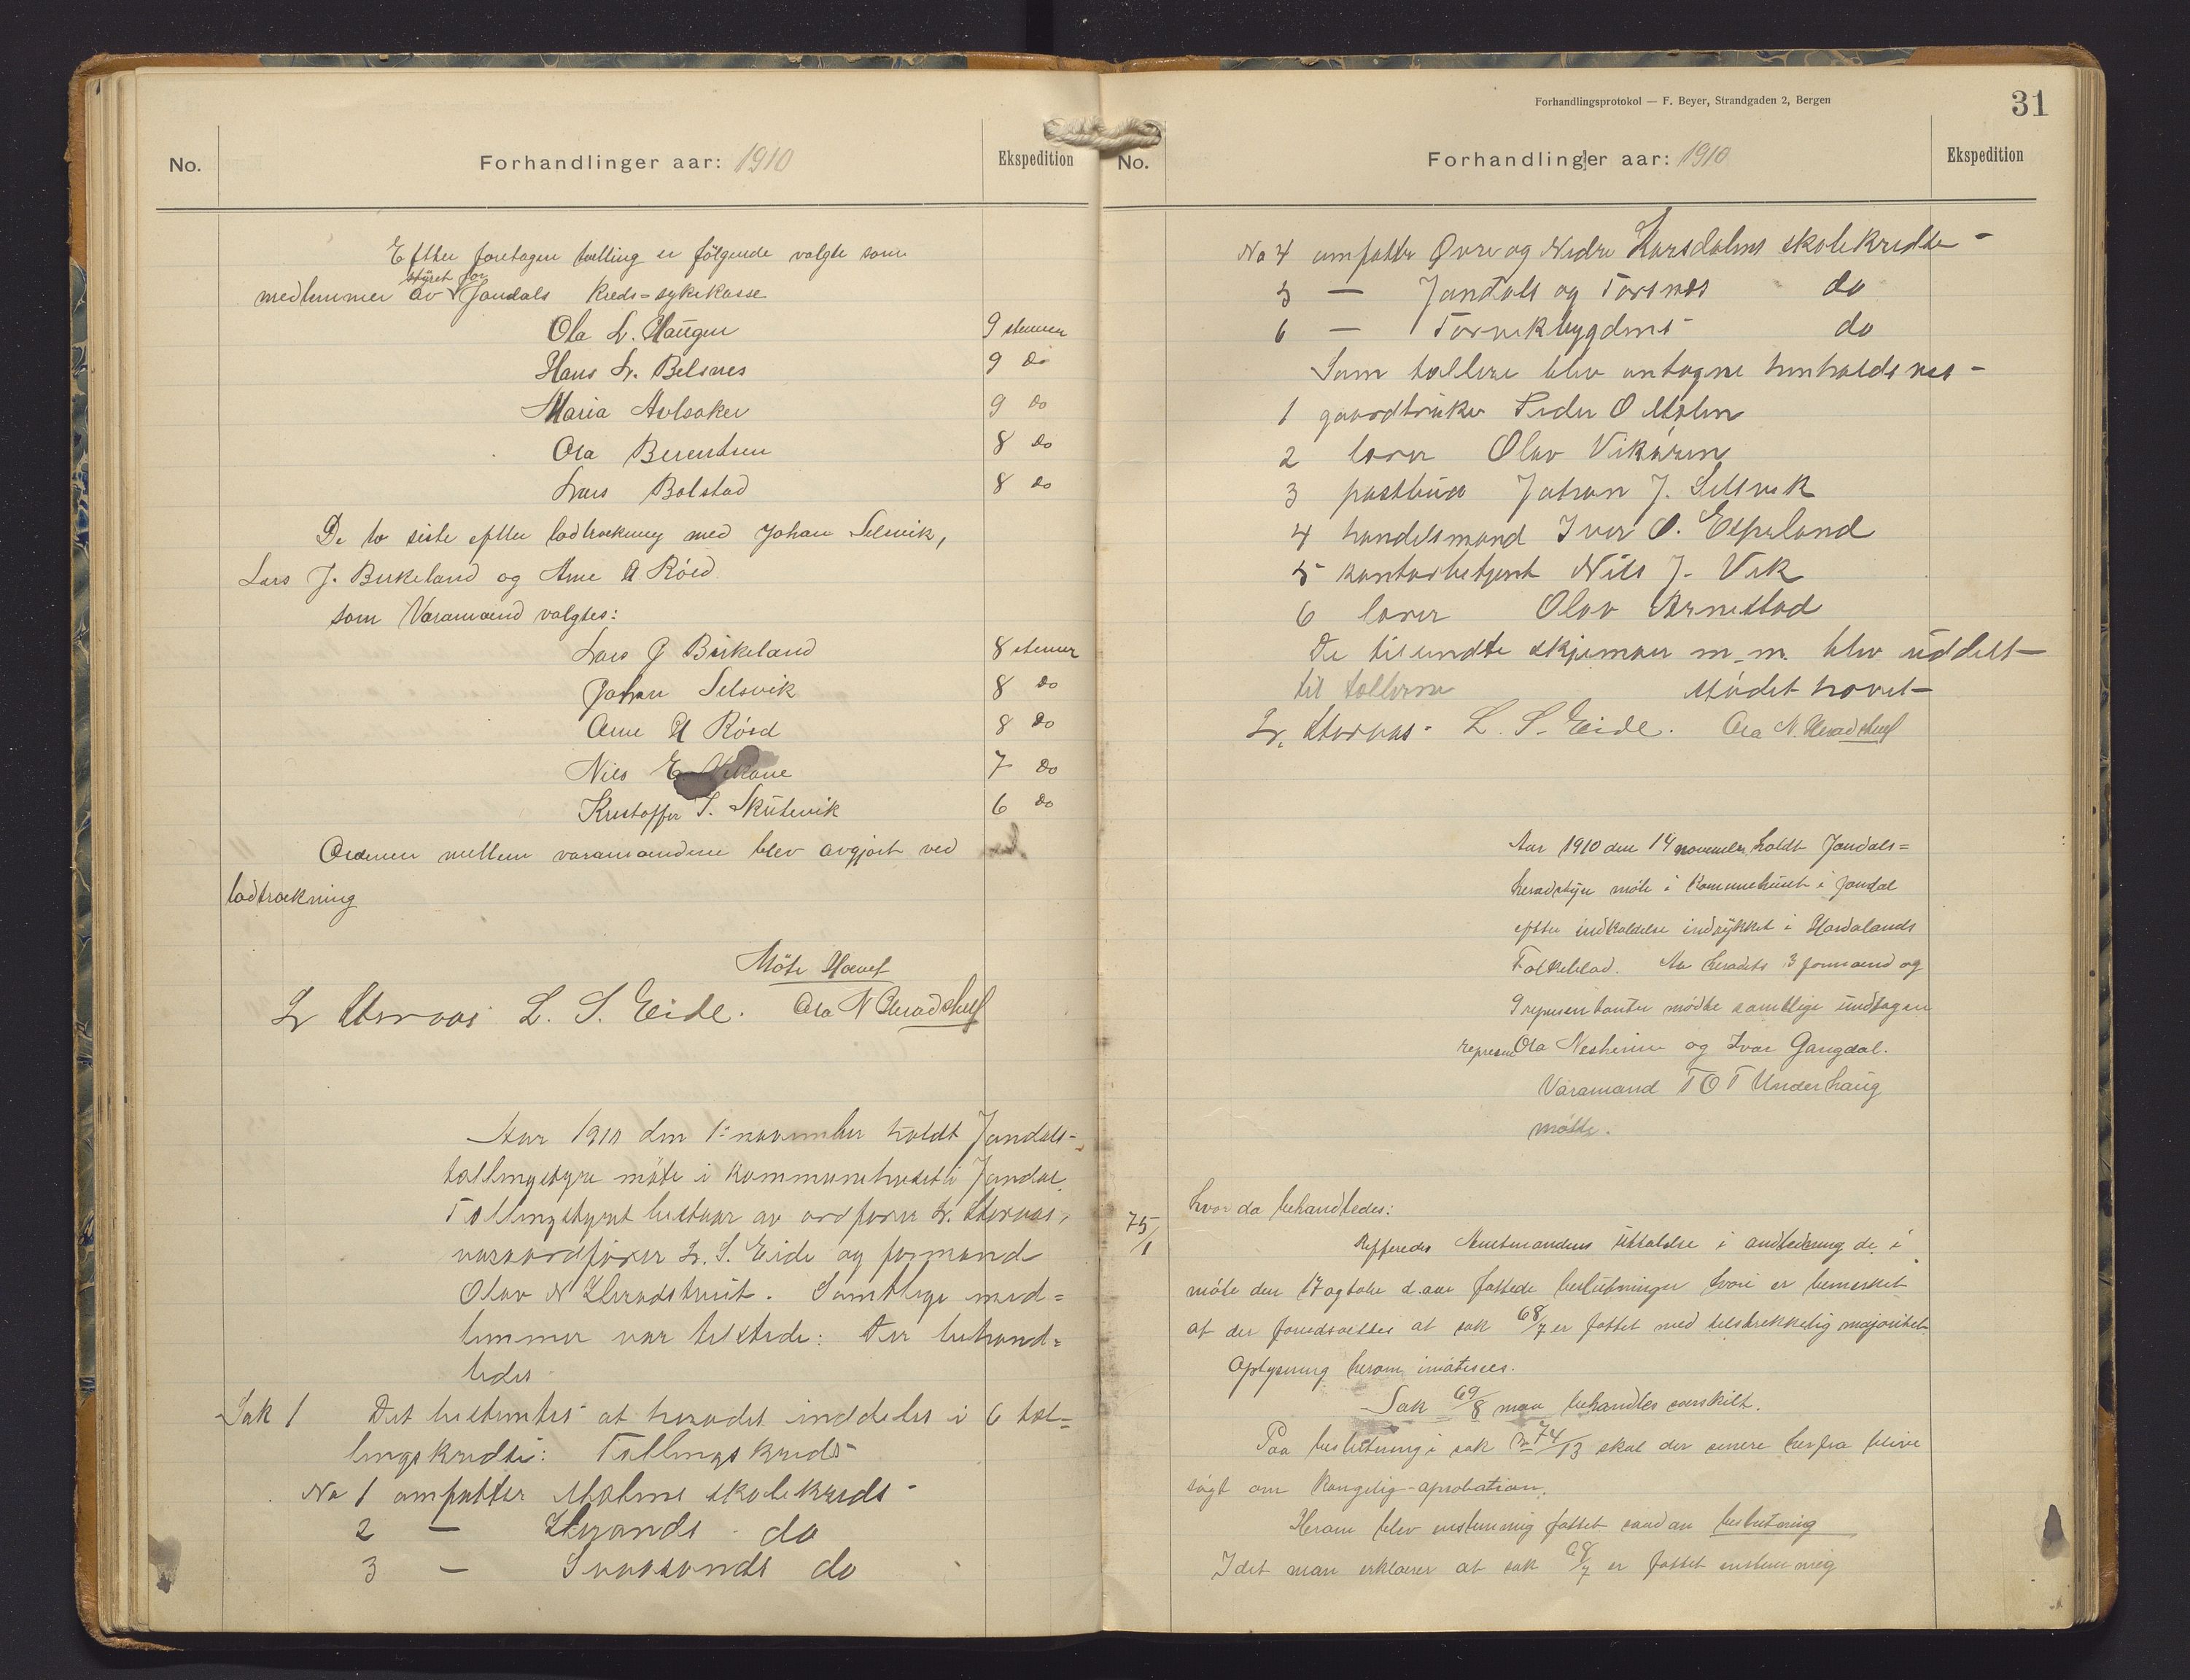 No.
Forhandlinger aar: 1910
Ekspedition
Efter foretagen tælling er fölgende valgte som
medlemmer av styret for Jondals kreds=sykekasse
Ola L. Haugen 9 stemmer
Hans L. Belsnes 9 do
Maria Avlsaker 9 do
Ola Berentsen 8 do
Lars Bolstad 8 do
De to siste efter lodtrækning med Johan Selsvik,
Lars J. Birkeland og Arne A Röed
som Varamænd valgtes:
Lars J Birkeland 8 stemmer
Johan Selsvik 8 do
Arne A Röed 8 do
Nils E Vikane 7 do
Kristoffer S. Skutevik 6 do
Ordenen mellem varamændene blev avgjort ved
lodtrækning
Möte Hævet
L. S. Eide. Ola N Heradstveit
Aar 1910 den 1ste november holdt Jondals-
tællingstyre möte i kommunehuset i Jondal.
Tællingstyret bestaar av ordförer
varaordförer L. S. Eide og formand
Olav N Heradstveit. Samtlige med=
lemmer var tilstede: Der behand=
ledes
Sak 1 Det bestemtes at heradet inddeles i 6 tæl=
lingskredse: Tællingskreds
No 1 omfatter Molms skolekreds
2 — do
3 — Svaasands do
Forhandlingsprotokol — F. Beyer, Strandgaden 2, Bergen
31
No.
Forhandlinger aar: 1910
Ekspedition
No 4 omfatter Övre og Nedre Korsdalens skolekredse
5 — Jondals og Torsnes do
6 — Torvikbygdens do
Som tællere blev antagne henholdsves -
1 gaardbruker Peder O Molm
2 lærer Olav Vikören
3 postbud Johan J. Selsvik
4 handelsmand Iver O. Espeland
5 kontorbetjent Nils J. Vik
6 lærer Olav Arnestad
De tilsendte skjemaer m. m. blev uddelt
til tællerne Mödet hævet
L. S. Eide. Ola N. Heradstveit
Aar 1910 den 14 november holdt Jondals=
heradstyre möte i Kommunehuset i Jondal
efter indkaldelse indrykket i Hordalands
Folkeblad. Av heradets 3 formænd og
9 representanter mödte samtlige undtagen
represent Ola Nesheim og Ivar Gangdal.
Varamand T O T Underhaug
mötte.
hvor da behandledes:
75/1 Reffereres Amtmandens uttalelse i andledning de i
möte den 17 oktober d. aar fattede beslutninger hvori er bemerket
at der forudsættes at sak 68/7 er fattet med tilstrekkelig majoritet.
Oplysning herom imötesees.
Sak 69/8 maa behandles særskilt.
Paa beslutning i sak 74/13 skal der senere herfra blive
sögt om kongelig-aprobation.
Herom blev enstemmig fattet saadan beslutning
Idet man erklærer at sak 68/7 er fattet enstemmig